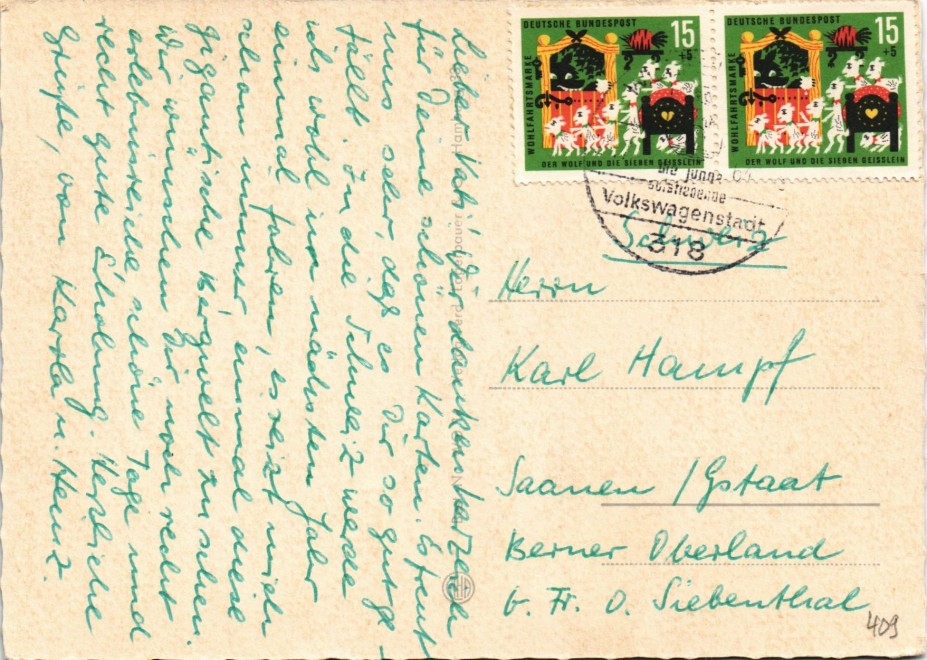 Lieber Vati! Wir danken herzlich
für Deine schönen Karten. Es freut
uns sehr, daß es Dir so gut ge-
fällt. In die Schweiz werde
ich wohl im nächsten Jahr
einmal fahren, es reizt mich
schon immer, einmal diese
gigantische Bergwelt zu sehen.
Wir wünschen Dir noch recht
erlebnisreiche schöne Tage und
recht gute Erholung. Herzliche
Grüße, von Karola u. Heinz.
DEUTSCHE BUNDESPOST
15
+5
WOHLFAHRTSMARKE
DER WOLF UND DIE SIEBEN GEISSLEIN
DEUTSCHE BUNDESPOST
15
+5
WOHLFAHRTSMARKE
DER WOLF UND DIE SIEBEN GEISSLEIN
Die junge
aufstrebende
Volkswagenstadt
318
Schweiz
Herrn
Karl Hampf
Saanen / Gstaat
Berner Oberland
b. Fr. v. Siebenthal
409